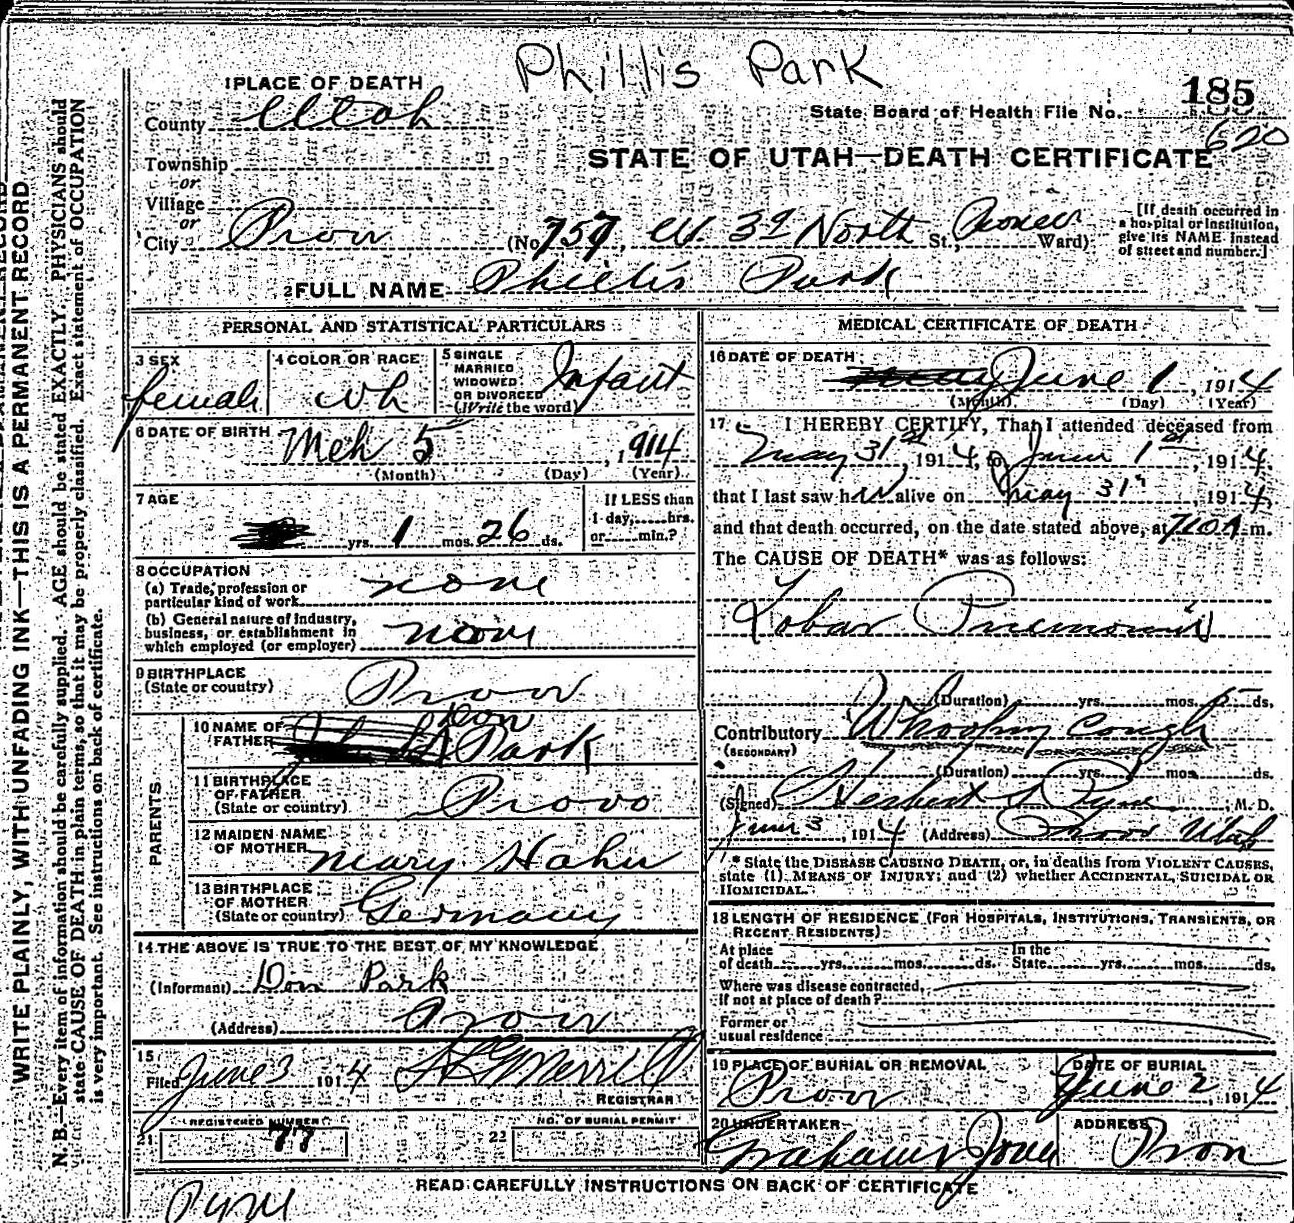 Phillis Park
185
State Board of Health File No.
620
STATE OF UTAH—DEATH CERTIFICATE
1 PLACE OF DEATH
County Utah
Township
or
Village
or
City Provo (No 757, W. 3d North St., Pioneer Ward)
[If death occurred in
a hospital or institution,
give its NAME instead
of street and number.]
2 FULL NAME Phillis Park
PERSONAL AND STATISTICAL PARTICULARS
3 SEX
female
4 COLOR OR RACE
wh
5 SINGLE
MARRIED
WIDOWED
OR DIVORCED
(Write the word)
Infant
6 DATE OF BIRTH
Mch 5, 1914
(Month) (Day) (Year)
7 AGE
yrs. 1 mos. 26 ds.
If LESS than
1 day, hrs.
or min.?
8 OCCUPATION
(a) Trade, profession or
particular kind of work none
(b) General nature of Industry,
business, or establishment in
which employed (or employer) none
9 BIRTHPLACE
(State or country) Provo
PARENTS
10 NAME OF
FATHER Don Park
11 BIRTHPLACE
OF FATHER
(State or country) Provo
12 MAIDEN NAME
OF MOTHER Mary Hahn
13 BIRTHPLACE
OF MOTHER
(State or country) Germany
14 THE ABOVE IS TRUE TO THE BEST OF MY KNOWLEDGE
(Informant) Don Park
(Address) Provo
15
Filed June 3 1914
REGISTRAR
REGISTERED NUMBER
21 77
NO. OF BURIAL PERMIT
22
MEDICAL CERTIFICATE OF DEATH
16 DATE OF DEATH
June 1, 1914
(Month) (Day) (Year)
17 I HEREBY CERTIFY, That I attended deceased from
May 31st, 1914, to June 1st, 1914.
that I last saw her alive on May 31st 1914,
and that death occurred, on the date stated above, at m.
The CAUSE OF DEATH* was as follows:
Lobar Pneumonia
(Duration) yrs. mos. 5 ds.
Contributory Whooping Cough
(SECONDARY)
(Duration) yrs. mos. ds.
(Signed) Herbert S Pyne, M. D.
June 3 1914 (Address) Provo Utah
* State the DISEASE CAUSING DEATH, or, in deaths from VIOLENT CAUSES,
state (1) MEANS OF INJURY; and (2) whether ACCIDENTAL, SUICIDAL OR
HOMICIDAL.
18 LENGTH OF RESIDENCE (FOR HOSPITALS, INSTITUTIONS, TRANSIENTS, OR
RECENT RESIDENTS)
At place In the
of death yrs. mos. ds. State yrs. mos. ds.
Where was disease contracted,
if not at place of death?
Former or
usual residence
19 PLACE OF BURIAL OR REMOVAL
Provo
DATE OF BURIAL
June 2, 1914
20 UNDERTAKER
ADDRESS
Provo
READ CAREFULLY INSTRUCTIONS ON BACK OF CERTIFICATE
Pyne
WRITE PLAINLY, WITH UNFADING INK—THIS IS A PERMANENT RECORD
N. B.—Every item of information should be carefully supplied. AGE should be stated EXACTLY. PHYSICIANS should
state CAUSE OF DEATH in plain terms, so that it may be properly classified. Exact statement of OCCUPATION
is very important. See instructions on back of certificate.